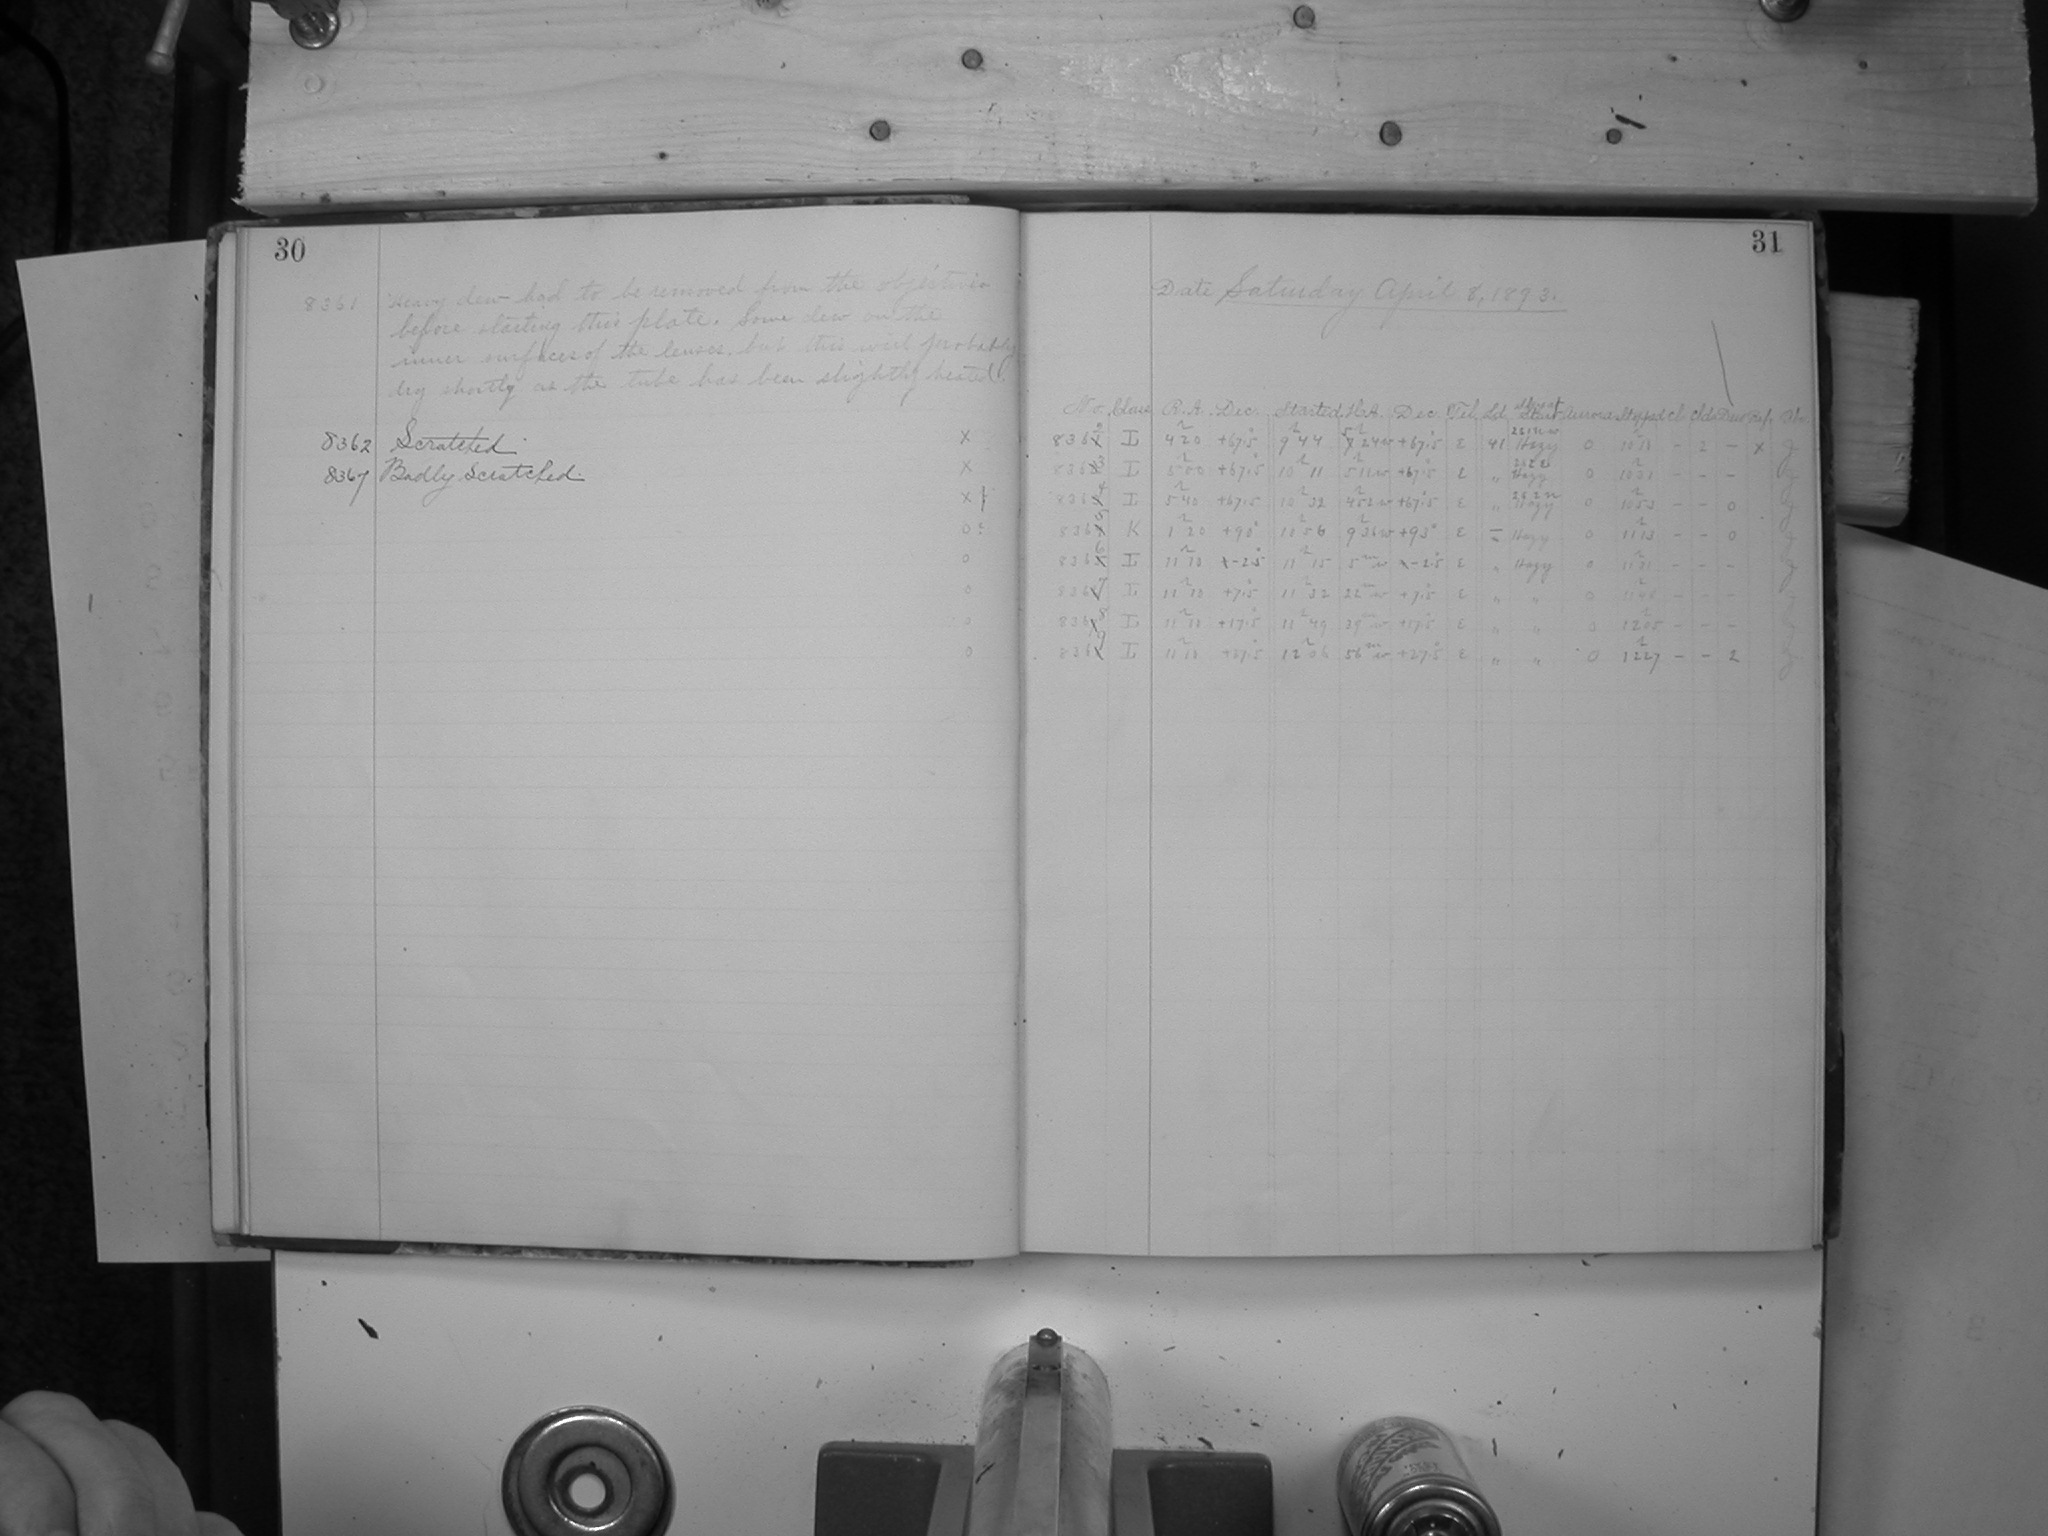 30
8361 Heavy dew had to be removed from the objective
before starting this plate. Some dew on the
inner surfaces of the lenses, but this will probably
dry shortly as the tube has been slightly heated.
8362 Scratched
8367 Badly Scratched.
31
Date Saturday April 8, 1893.
No. Class R.A. Dec. Started H.A. Dec. Tel. Sd. Aurora Stopped Cl. Clds Dew
X 836 I 4 20 +67.5 9 44 24 w +67.5 E 41 Hazy 0 - 2 - X
X 8363 I 5 00 +67.5 10 11 5 11 w +67.5 E " Hazy 0 10 31 - - -
X 8364 I 5 40 +67.5 10 32 4 52 w +67.5 E " Hazy 0 10 53 - - 0
0 8365 K 1 20 +90 10 56 9 36 w +93 E I Hazy 0 11 13 - - 0
0 8366 I 11 10 -2.5 11 15 5 m w -2.5 E " Hazy 0 11 31 - - -
0 8367 I 11 10 +7.5 11 32 22 m w +7.5 E " " 0 11 48 - - -
0 8368 I 11 10 +17.5 11 49 39 m w +17.5 E " " 0 12 05 - - -
0 8369 I 11 10 +27.5 12 06 56 m w +27.5 E " " 0 12 27 - - 2